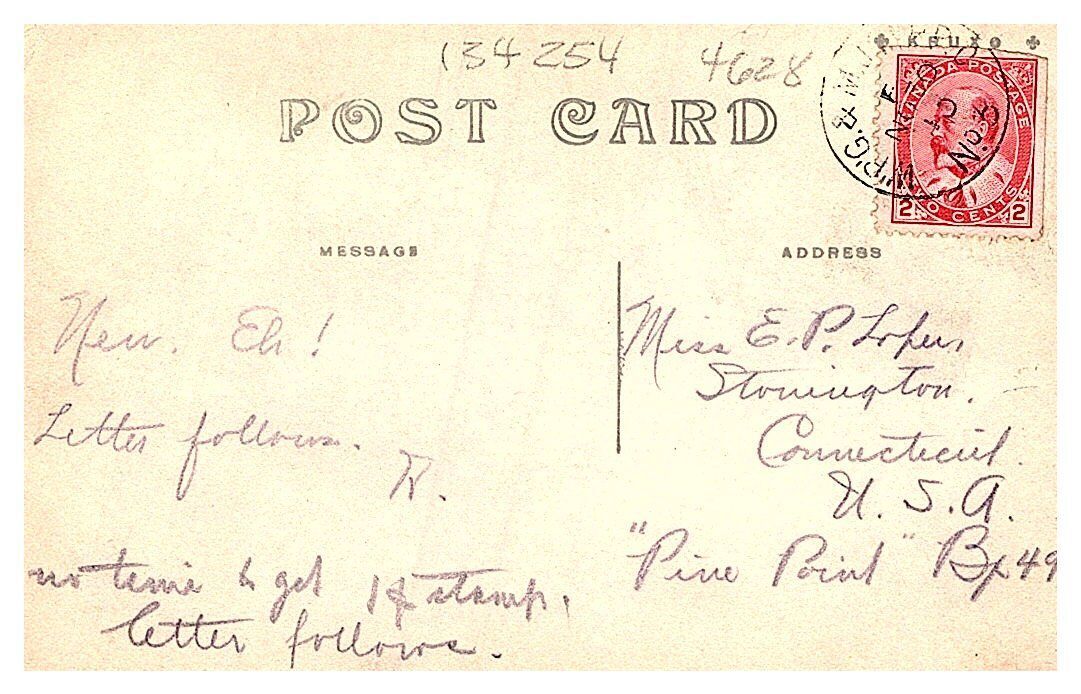 134254 4628
KRUXO
POST CARD
CANADA POSTAGE
2 TWO CENTS 2
WPG. & M.J.
No. 8
MESSAGE
ADDRESS
New. Eh!
Letter follows.
no time to get 1¢ stamp.
letter follows.
Miss E. P. Loper
Stonington.
Connecticut.
U. S. A.
"Pine Point" Bx 49